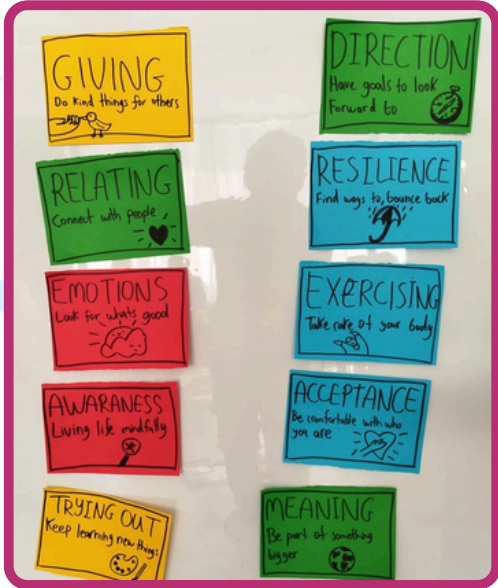 GIVING
Do kind things for others
RELATING
Connect with people
EMOTIONS
Look for whats good
AWARANESS
Living life mindfully
TRYING OUT
Keep learning new things
DIRECTION
Have goals to look
Forward to
RESILIENCE
Find ways to bounce back
EXERCISING
Take care of your body
ACCEPTANCE
Be comfortable with who
you are
MEANING
Be part of something
bigger